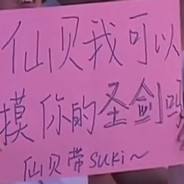 仙贝我可以
摸你的圣剑吗
仙贝带suki~